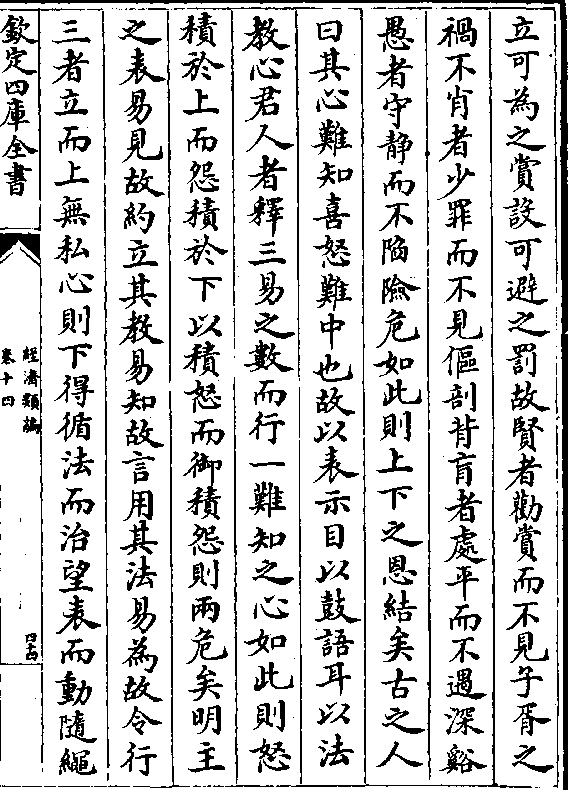 立可為之賞設可避之罰故賢者勸賞而不見子胥之
禍不肖者少罪而不見傴剖背盲者處平而不遇深谿
愚者守静而不陷險危如此則上下之恩結矣古之人
曰其心難知喜怒難中也故以表示目以鼓語耳以法
教心君人者釋三易之數而行一難知之心如此則怒
積於上而怨積於下以積怒而御積怨則兩危矣明主
之表易見故約立其教易知故言用其法易為故令行
三者立而上無私心則下得循法而治望表而動隨繩
欽定四庫全書
經濟類編
卷十四
四十四